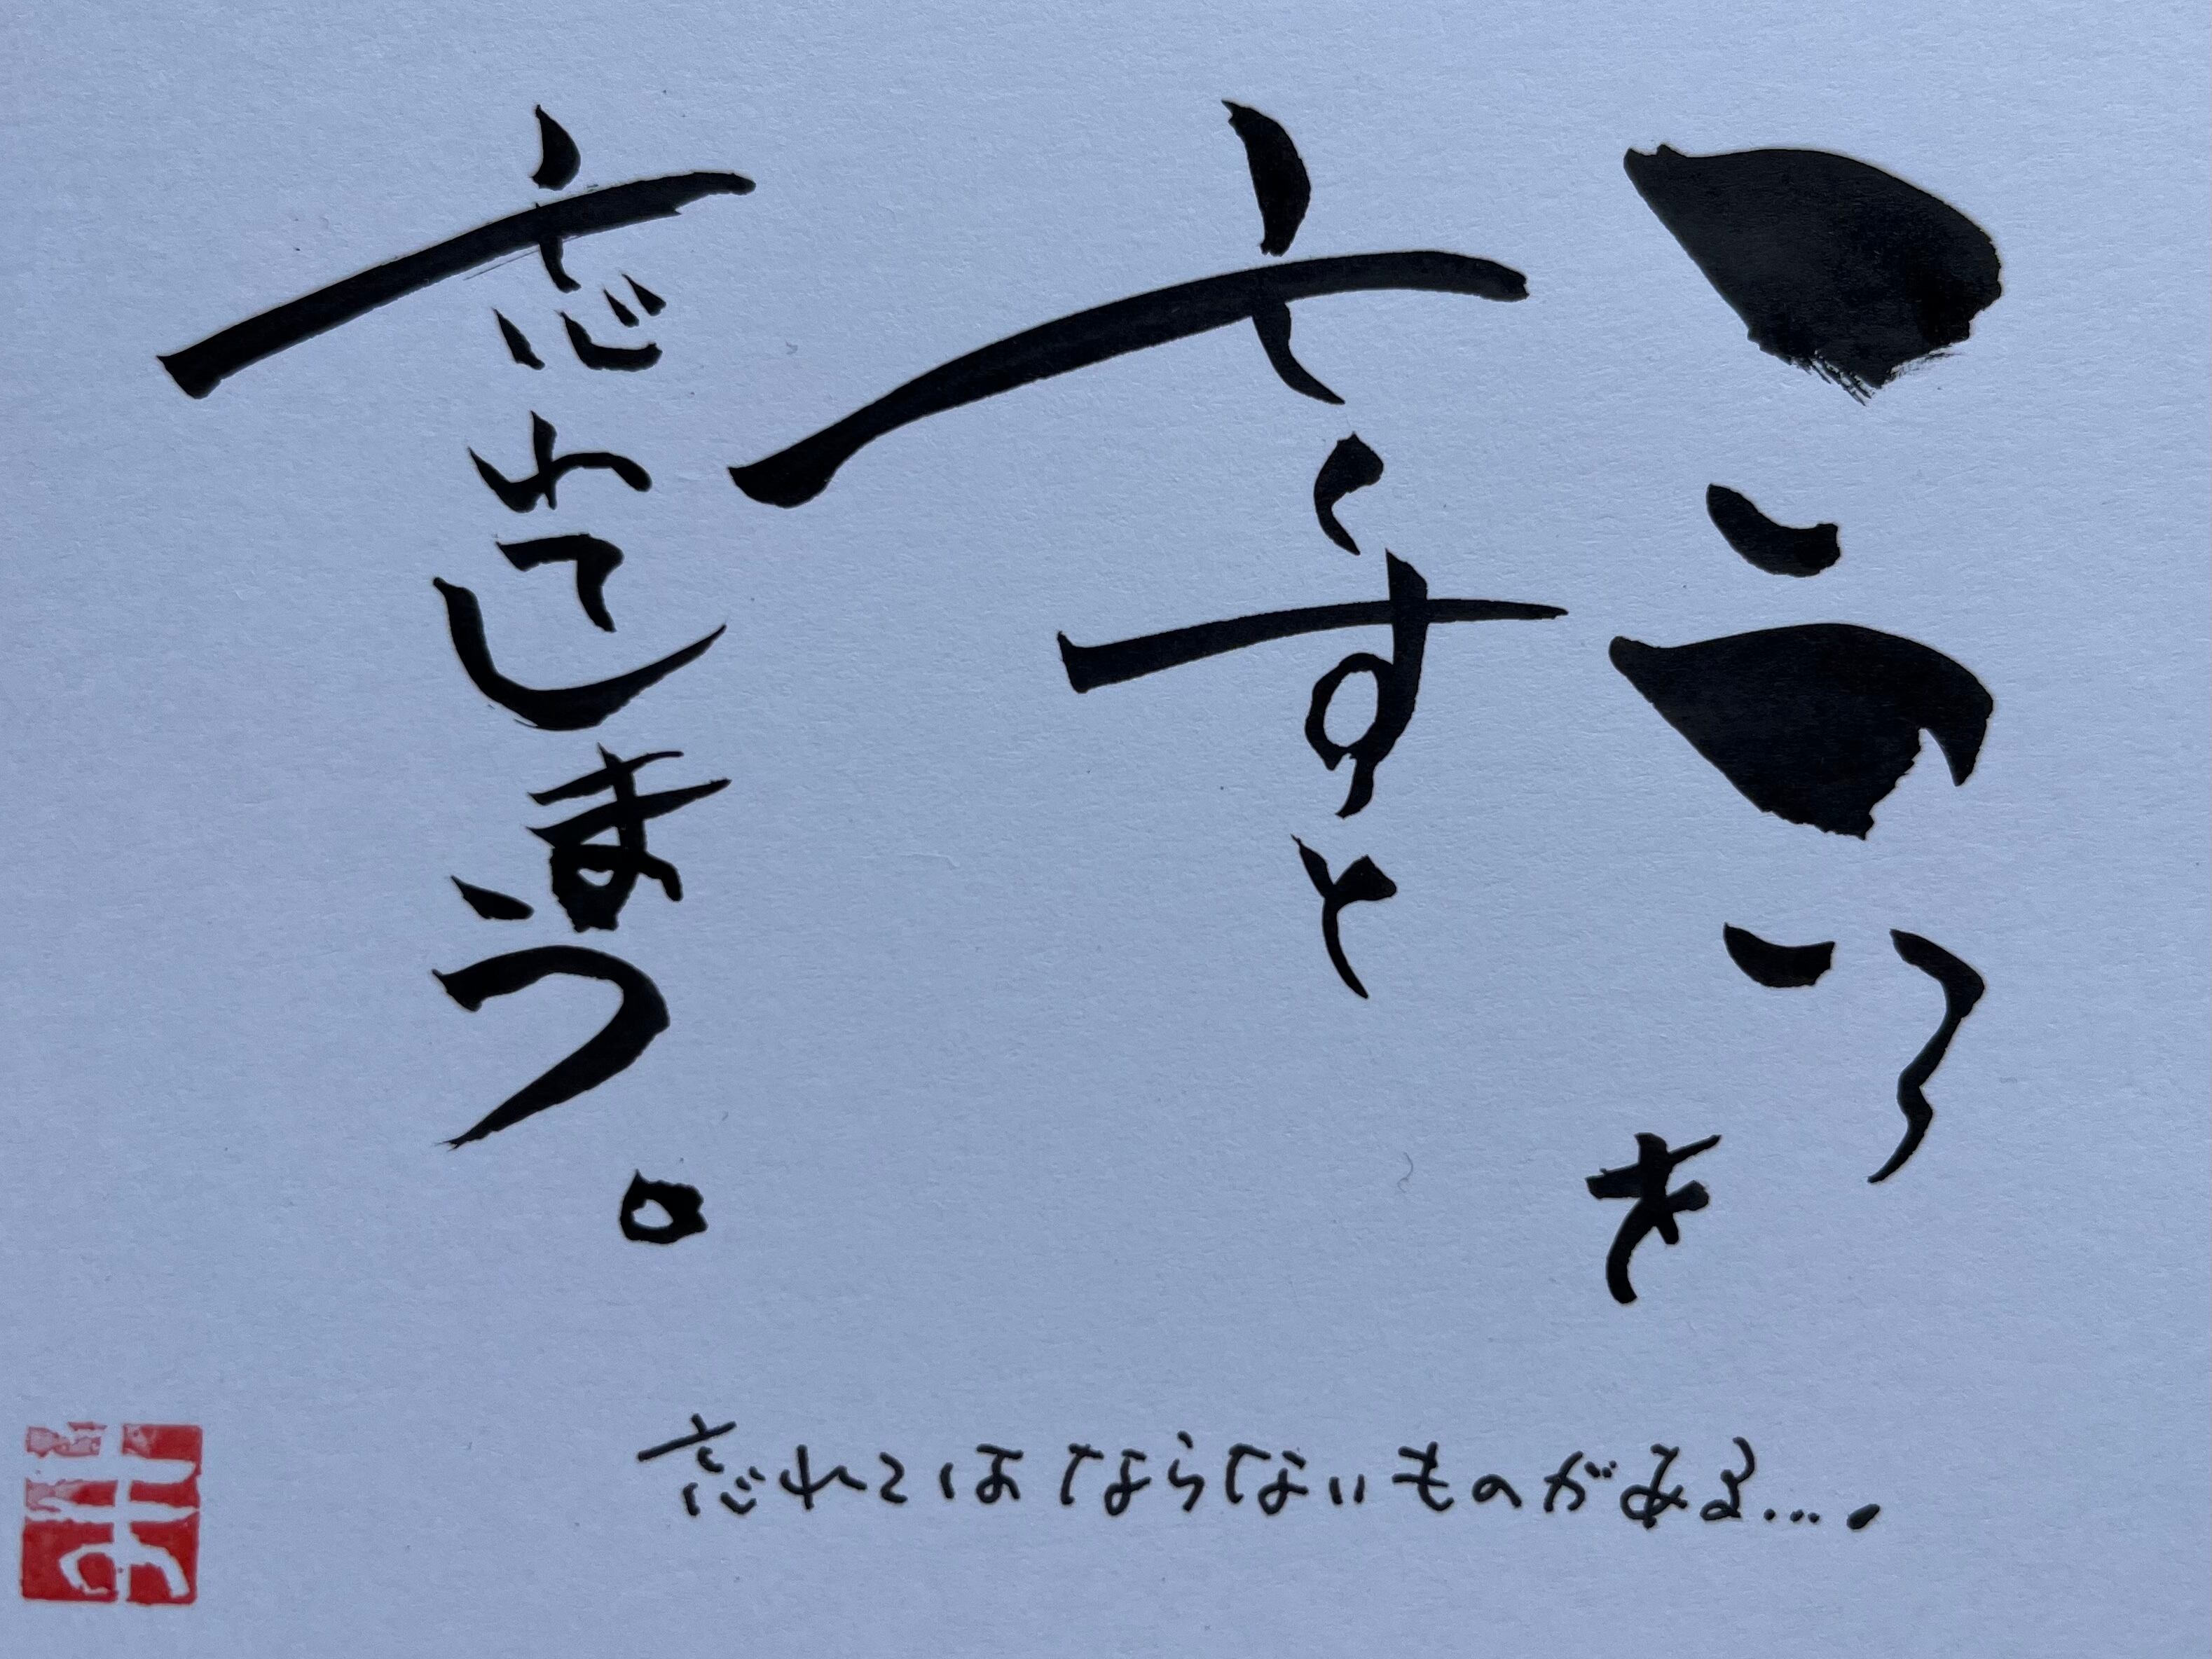 こころを
亡くすと
忘れてしまう。
忘れてはならないものがある….